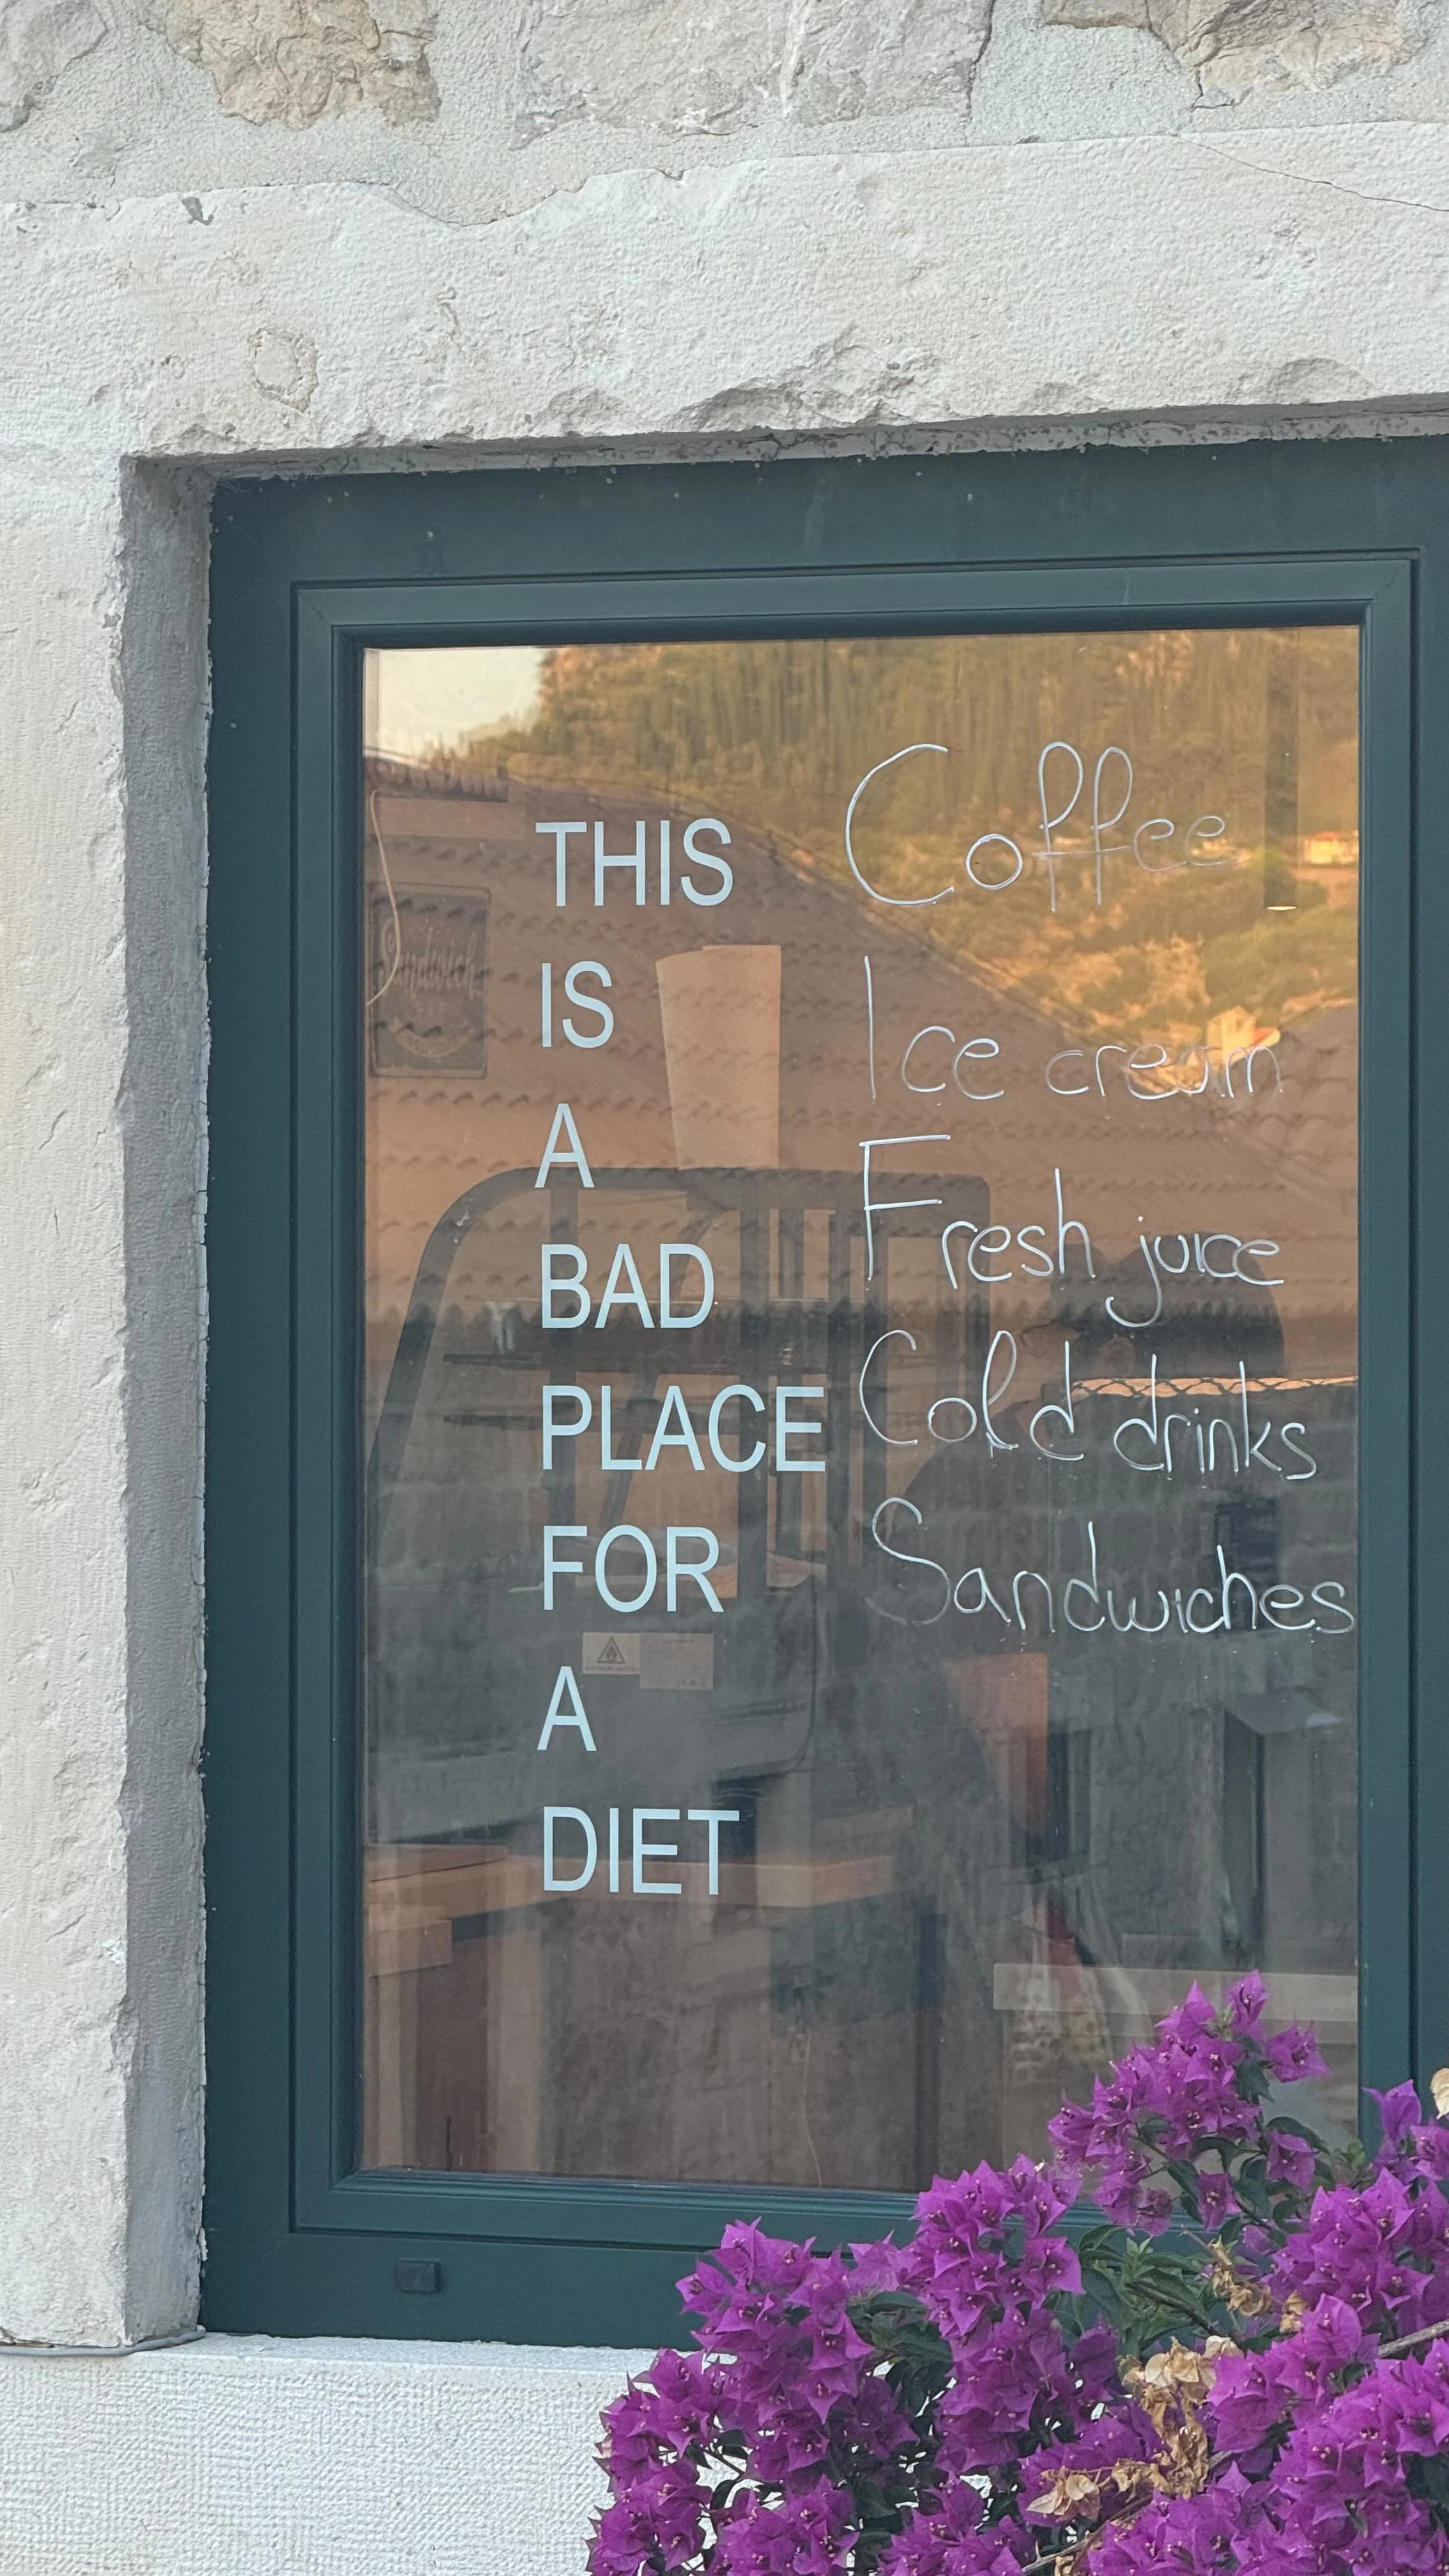 THIS
IS
A
BAD
PLACE
FOR
A
DIET
Coffee
Ice cream
Fresh juice
Cold drinks
Sandwiches
Sandwich